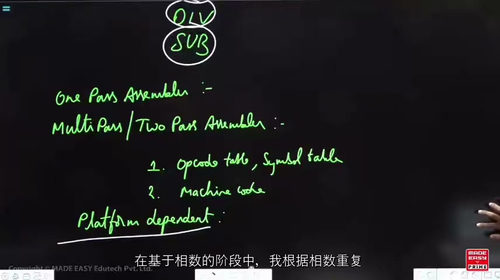 DIV
SUB
One Pass Assembler :-
MultiPass/Two Pass Assembler :-
1. Opcode table, Symbol table
2. Machine code
Platform dependent :
在基于相数的阶段中，我根据相数重复
Copyright © MADE EASY Edutech Pvt. Ltd.
MADE
EASY